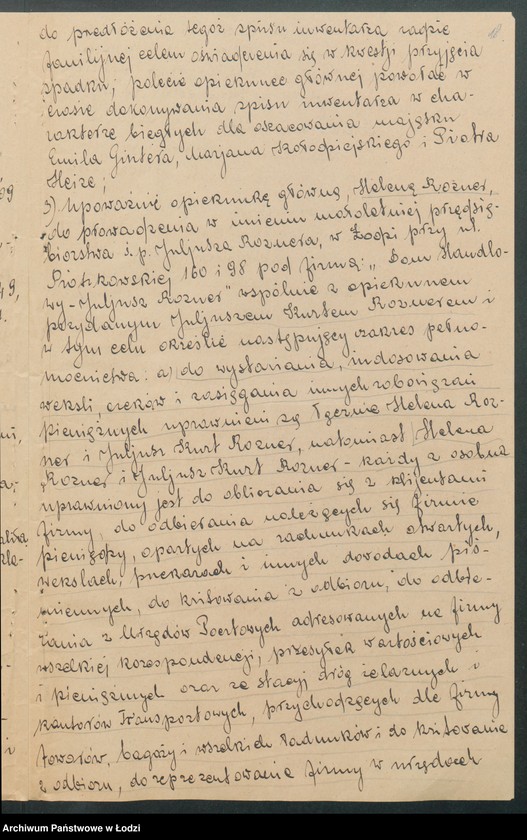 do przedłożenia tegoż spisu inwentarza radzie
familijnej celem oświadczenia się w kwestji przyjęcia
spadku; polecić opiekunce głównej powołać w
czasie dokonywania spisu inwentarza w cha-
rakterze biegłych dla oszacowania majątku
Emila Gintera, Marjana Kołopiejskiego i Piotra
Heize;
5) upoważnić opiekunkę główną, Helenę Rozner,
do prowadzenia w imieniu małoletniej przedsię-
biorstwa ś.p. Juljusza Roznera, w Łodzi przy ul.
Piotrkowskiej 160 i 98 pod firmą: „Dom Handlo-
wy - Juljusz Rozner" wspólnie z opiekunem
przydanym Juljuszem Kurtem Roznerem i
w tym celu określić następujący zakres pełno-
mocnictwa: a) do wystawiania, indosowania
weksli, czeków i zaciągania innych zobowiązań
pieniężnych uprawnieni są łącznie Helena Roz-
ner i Juljusz Kurt Rozner, natomiast Helena
Rozner i Juljusz Kurt Rozner - każdy z osobna
uprawniony jest do obliczania się z klijentami
firmy, do odbierania należących się firmie
pieniędzy, opartych na rachunkach otwartych,
wekslach, przekazach i innych dowodach piś-
miennych, do kwitowania z odbioru, do odbie-
rania z Urzędów Pocztowych adresowanych na firmy
wszelkiej korespondencji, przesyłek wartościowych
i pieniężnych oraz ze stacyj dróg żelaznych i
kantorów transportowych, przychodzących dla firmy
towarów, bagaży i wszelkich ładunków i do kwitowania
z odbioru, do reprezentowania firmy w urzędach
Archiwum Państwowe w Łodzi